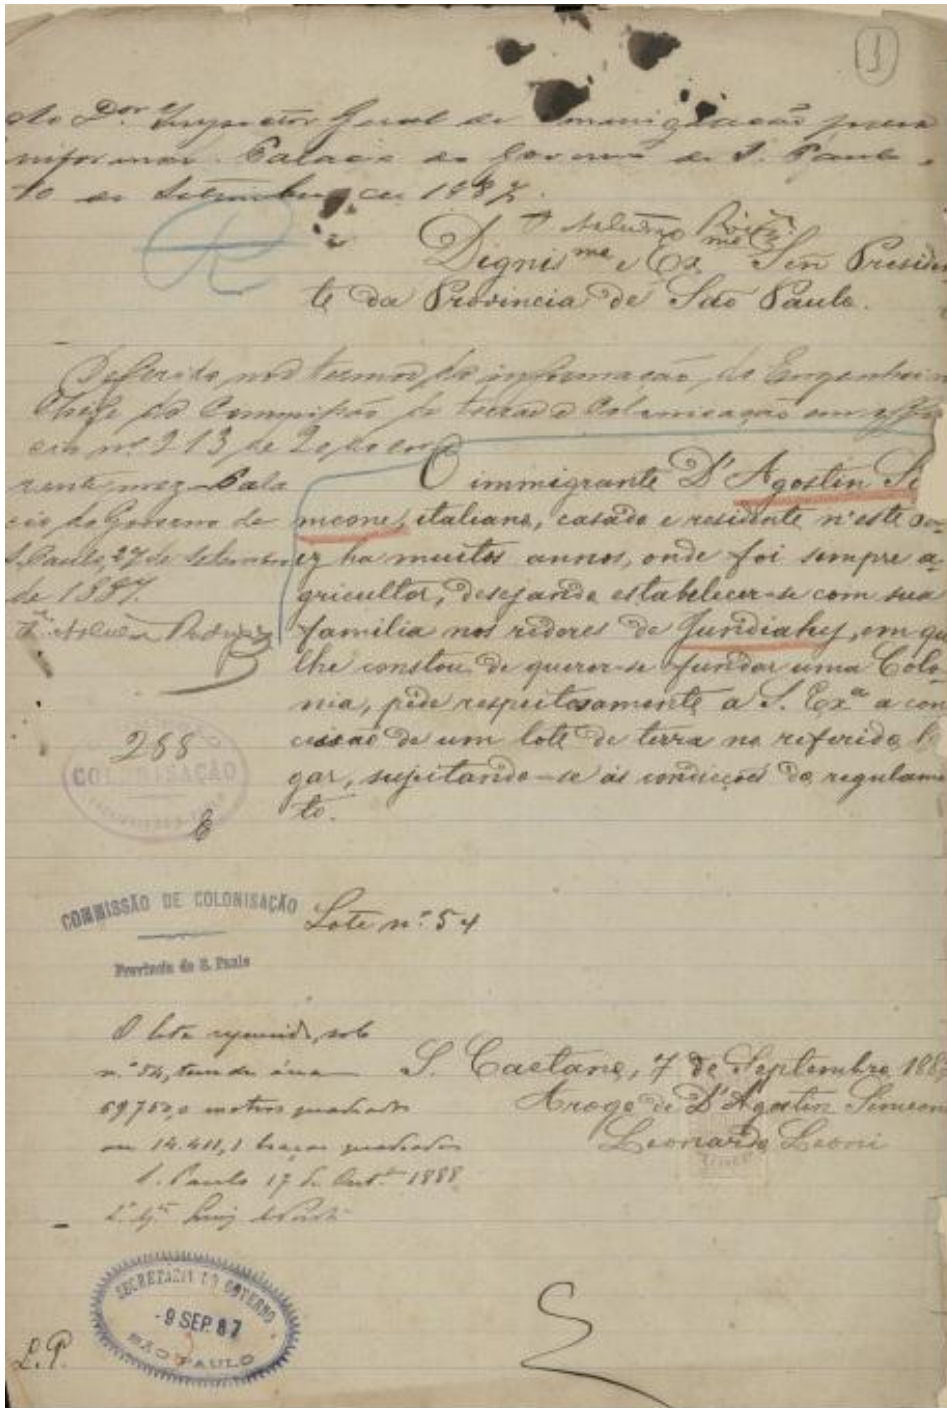 1
Ao Dor Inspector Geral de Immigração para
informar. Palacio do Governo de S. Paulo
10 de Setembro de 1887.
Dignisme e Exme Señ Presiden
te da Provincia de São Paulo.
Deferido nos termos da informação do Engenheiro
Chefe da Commissão de terras e Colonisação em offi
cio nº 213 de 20 do cor
rente mez. Pala
cio do Governo de
S. Paulo, 27 de Setembro
de 1887.
O immigrante D'Agostin Si
meone, italiano, casado e residente n'este pa-
iz ha muitos annos, onde foi sempre a-
gricultor, desejando estabelecer-se com sua
familia nos redores de Jundiahy, em que
lhe constou de querer-se fundar uma Colo-
nia, pede respeitosamente a S. Exa a con
cessão de um lote de terra no referido lo
gar, sujeitando-se ás condicções do regulamen
to.
288
COLONISAÇÃO
COMMISSÃO DE COLONISAÇÃO
Provincia de S. Paulo
Lote n.º 54
O lote requerido, sob
n.º 54, tem de área
69,750,0 metros quadrados
ou 14.411,1 braças quadradas
S. Paulo 17 de Out.º 1888
S. Caetano, 7 de Septembro 1887
A rogo de D'Agostin Simeone
Leonardo Leoni
SECRETARIA DO GOVERNO
-9 SEP. 87
SÃO PAULO
L.P.